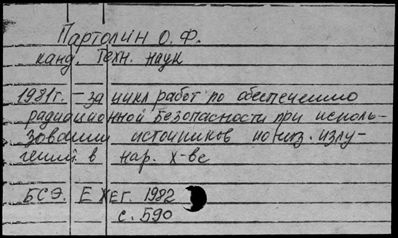 Партолин О. Ф.
канд. техн. наук
1981г. - за цикл работ по обеспечению
радиационной безопасности при исполь-
зовании источников иониз. излу-
чений в нар. х-ве
БСЭ. Ежег. 1982
с. 590